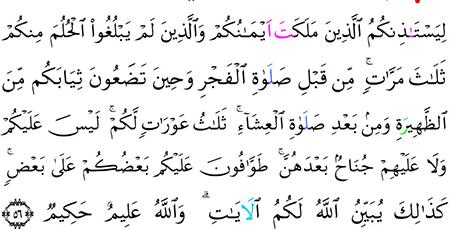 لِيَسْتَـْٔذِنكُمُ ٱلَّذِينَ مَلَكَتْ أَيْمَـٰنُكُمْ وَٱلَّذِينَ لَمْ يَبْلُغُوا۟ ٱلْحُلُمَ مِنكُمْ
ثَلَـٰثَ مَرَّٰتٍ ۚ مِّن قَبْلِ صَلَوٰةِ ٱلْفَجْرِ وَحِينَ تَضَعُونَ ثِيَابَكُم مِّنَ
ٱلظَّهِيرَةِ وَمِنۢ بَعْدِ صَلَوٰةِ ٱلْعِشَآءِ ۚ ثَلَـٰثُ عَوْرَٰتٍ لَّكُمْ ۚ لَيْسَ عَلَيْكُمْ
وَلَا عَلَيْهِمْ جُنَاحٌۢ بَعْدَهُنَّ ۚ طَوَّٰفُونَ عَلَيْكُم بَعْضُكُمْ عَلَىٰ بَعْضٍ ۚ
كَذَٰلِكَ يُبَيِّنُ ٱللَّهُ لَكُمُ ٱلْـَٔايَـٰتِ ۗ وَٱللَّهُ عَلِيمٌ حَكِيمٌ ٥٦